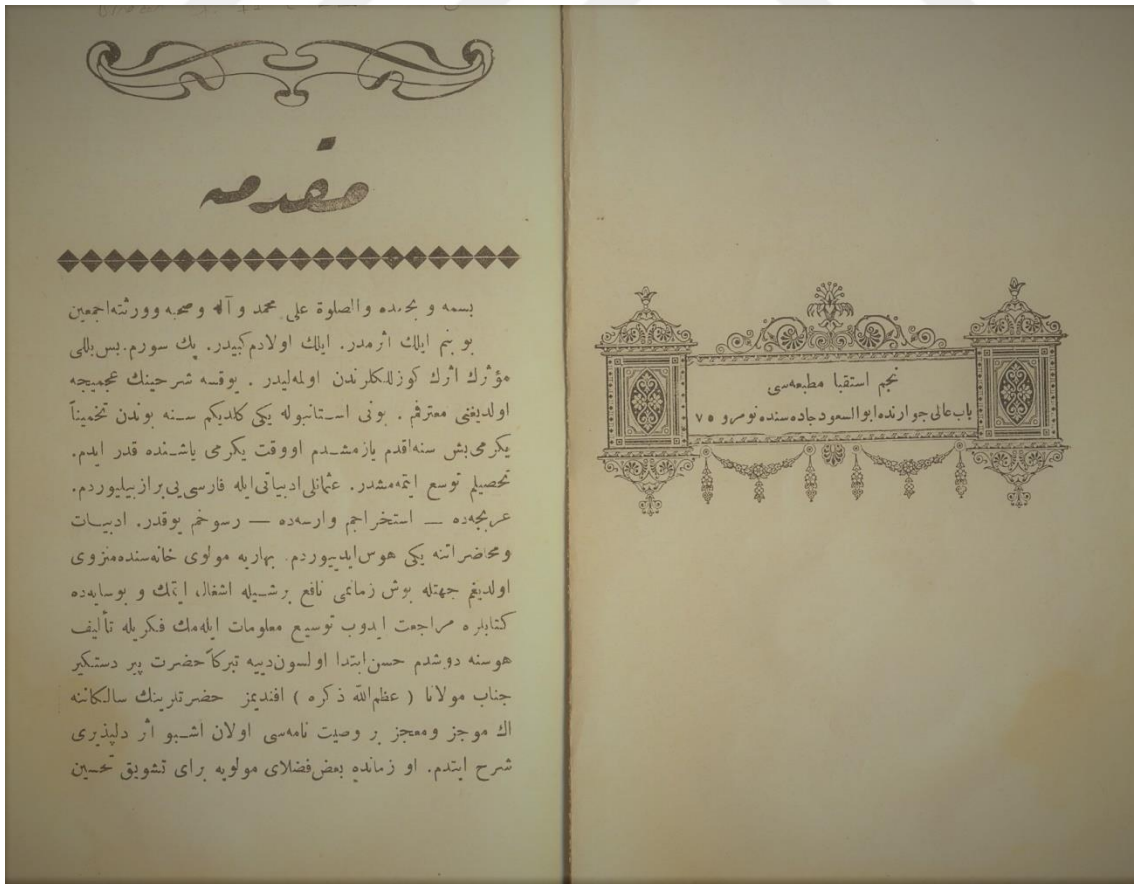 مقدمه
بسمه و بحمده والصلوة علی محمد و آله و صحبه وورثته‌اجمعین
بو بنم ایلك اثرمدر. ایلك اولادم‌کبیدر. پك سورم. بس‌بللی
مؤثرك اثرك کوزللکلرندن اولمه‌لیدر . یوقسه شرحینك عجمیجه
اولدیغنی معترفم . بونی اسـتانبوله یکی کلدیکم سـنه بوندن تخمیناً
یکرمی‌بش سنه‌اقدم یازمشـدم اووقت یکرمی یاشـنده قدر ایدم.
تحصیلم توسع ایتمه‌مشدر. عثمانلی‌ادبیاتی‌ایله فارسی‌یی‌برازبیلیوردم.
عربجه‌ده — استخراجم وارسه‌ده — رسوخم یوقدر. ادبیـات
ومحاضراتنه یکی هوس‌ایدییوردم. بهاریه مولوی خانه‌سنده‌منزوی
اولدیغم جهتله بوش زمانمی نافع برشـیله اشغال ایتمك و بوسایه‌ده
کتابلره مراجعت ایدوب توسیع معلومات ایله‌مك فکریله تألیف
هوسنه دوشدم حسن‌ابتدا اولسون‌دییه تبرکاً حضرت پیر دستکیر
جناب مولانا ( عظم‌الله ذکره ) افندیمز حضرتلرینك سالکاننه
اك موجز ومعجز بر وصیت نامه‌سی اولان اشـبو اثر دلپذیری
شرح ایتدم. او زمانده بعض‌فضلای مولویه برای تشویق تحسین
نجم استقبا مطبعه‌سی
باب عالی جوارنده‌ابوالسعودجاده‌سنده‌نومرو ٧٥